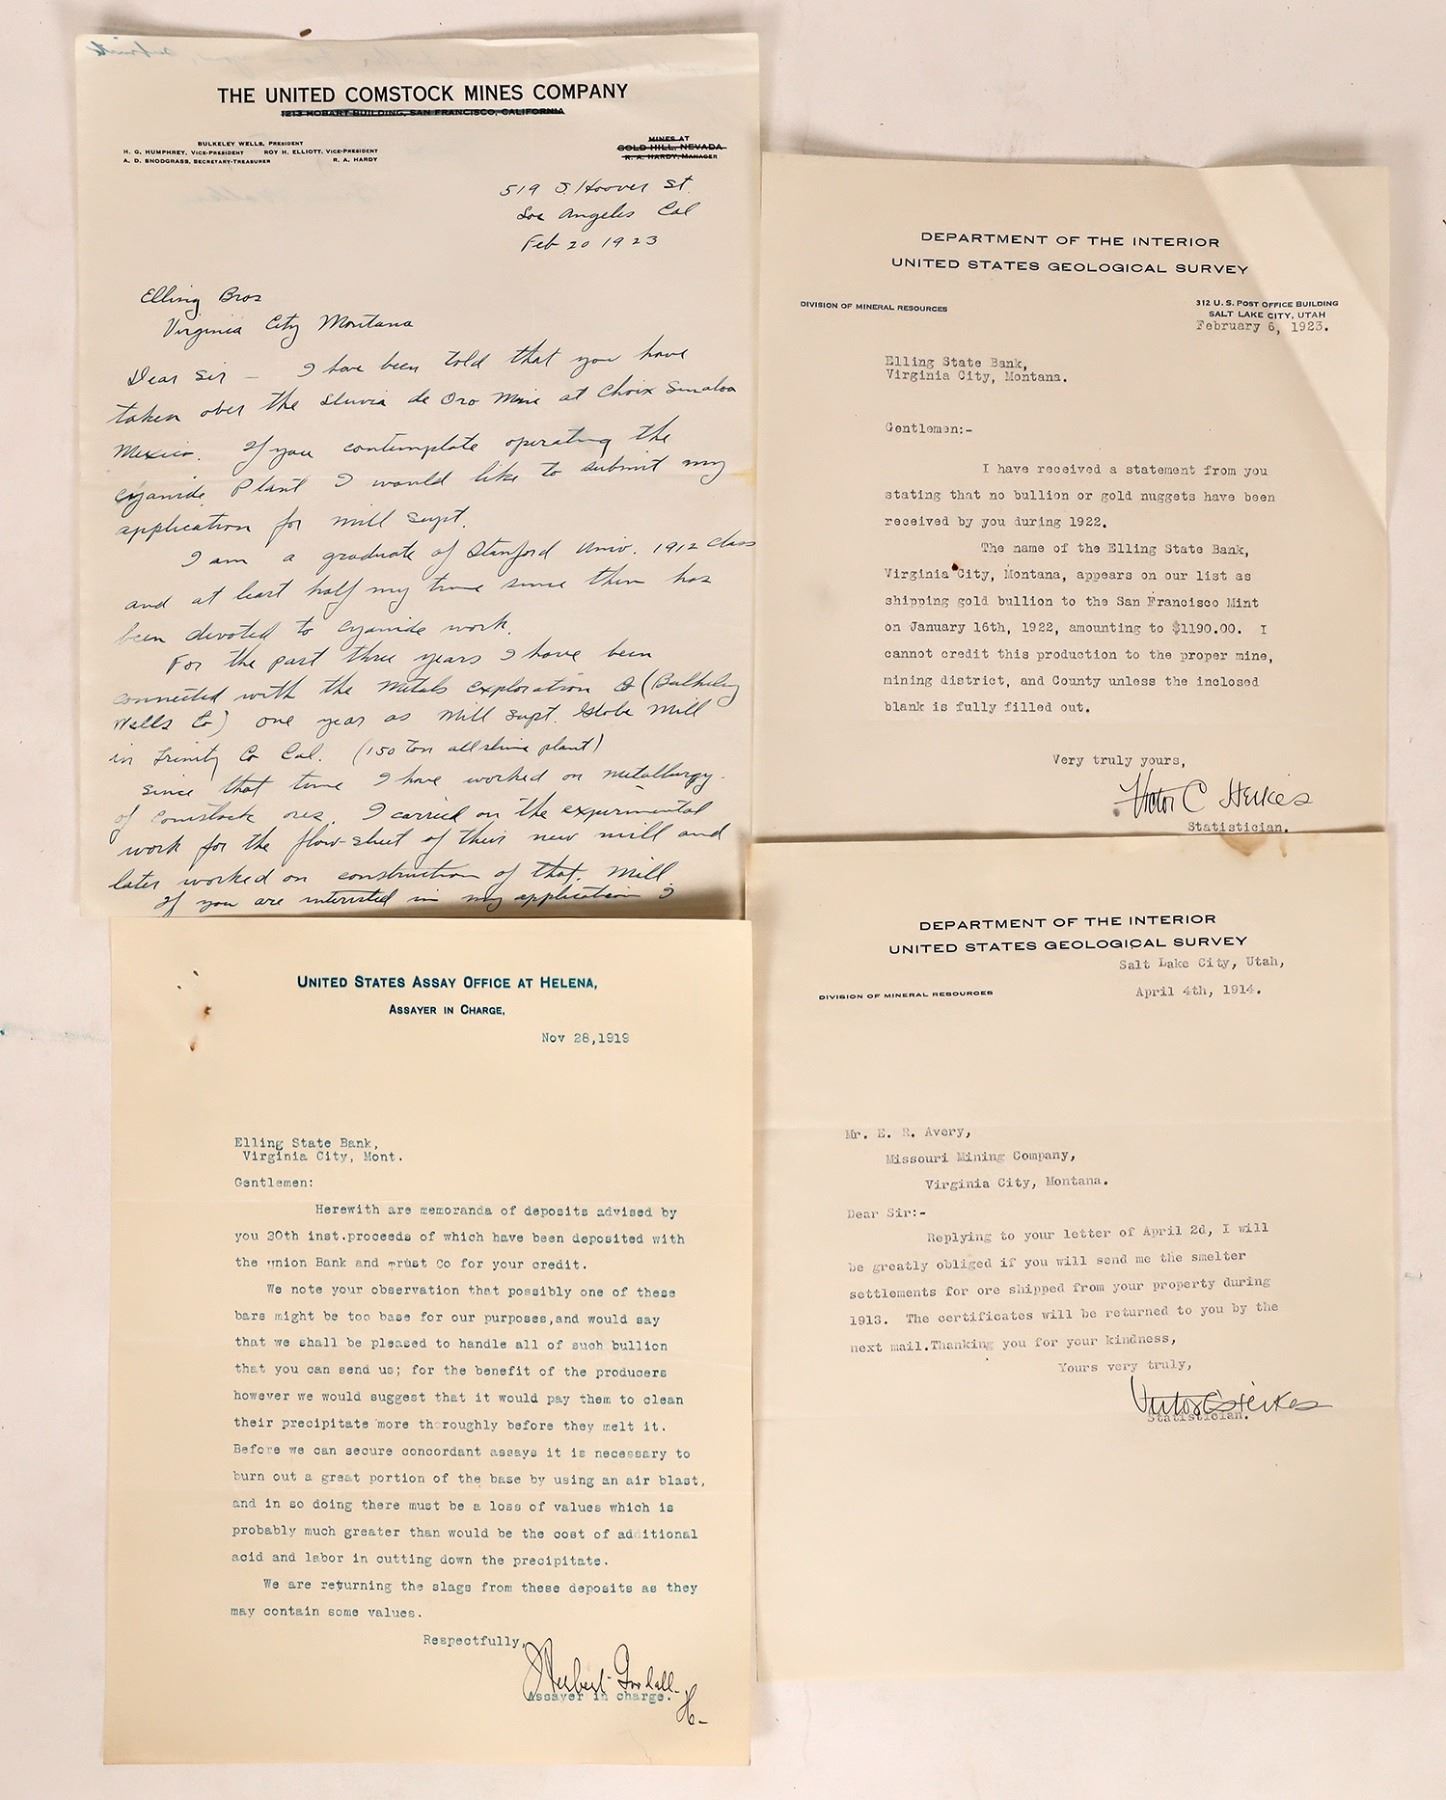 THE UNITED COMSTOCK MINES COMPANY
1213 HOBART BUILDING, SAN FRANCISCO, CALIFORNIA
BULKELEY WELLS, PRESIDENT
H. G. HUMPHREY, VICE-PRESIDENT ROY H. ELLIOTT, VICE-PRESIDENT
A. D. SNODGRASS, SECRETARY-TREASURER R. A. HARDY
MINES AT
GOLD HILL, NEVADA
R. A. HARDY, MANAGER
519 S. Hoover St.
Los Angeles Cal
Feb 20 1923
Elling Bros
Virginia City Montana
Dear Sir — I have been told that you have
taken over the Lluvia de Oro Mine at Choix Sinaloa
Mexico. If you contemplate operating the
cyanide Plant I would like to submit my
application for mill supt.
I am a graduate of Stanford Univ. 1912 class
and at least half my time since then has
been devoted to cyanide work.
For the past three years I have been
connected with the Metals Exploration Co (Bulkeley
Wells Co) one year as Mill Supt. Globe Mill
in Trinity Co Cal. (150 Ton all slime plant)
Since that time I have worked on metallurgy
of Comstock ores. I carried on the experimental
work for the flow-sheet of their new mill and
later worked on construction of that. Mill.
If you are interested in my application I
DEPARTMENT OF THE INTERIOR
UNITED STATES GEOLOGICAL SURVEY
DIVISION OF MINERAL RESOURCES
312 U. S. POST OFFICE BUILDING
SALT LAKE CITY, UTAH
February 6, 1923.
Elling State Bank,
Virginia City, Montana.
Gentlemen:-
I have received a statement from you
stating that no bullion or gold nuggets have been
received by you during 1922.
The name of the Elling State Bank,
Virginia City, Montana, appears on our list as
shipping gold bullion to the San Francisco Mint
on January 16th, 1922, amounting to $1190.00. I
cannot credit this production to the proper mine,
mining district, and County unless the inclosed
blank is fully filled out.
Very truly yours,
Victor C Heikes
Statistician.
UNITED STATES ASSAY OFFICE AT HELENA,
ASSAYER IN CHARGE,
Nov 28,1919
Elling State Bank,
Virginia City, Mont.
Gentlemen:
Herewith are memoranda of deposits advised by
you 20th inst.proceeds of which have been deposited with
the union Bank and Trust Co for your credit.
We note your observation that possibly one of these
bars might be too base for our purposes,and would say
that we shall be pleased to handle all of such bullion
that you can send us; for the benefit of the producers
however we would suggest that it would pay them to clean
their precipitate more thoroughly before they melt it.
Before we can secure concordant assays it is necessary to
burn out a great portion of the base by using an air blast,
and in so doing there must be a loss of values which is
probably much greater than would be the cost of additional
acid and labor in cutting down the precipitate.
We are returning the slags from these deposits as they
may contain some values.
Respectfully,
Herbert Goodall
Assayer in charge.
H-
DEPARTMENT OF THE INTERIOR
UNITED STATES GEOLOGICAL SURVEY
Salt Lake City, Utah,
DIVISION OF MINERAL RESOURCES
April 4th, 1914.
Mr. E. R. Avery,
Missouri Mining Company,
Virginia City, Montana.
Dear Sir:-
Replying to your letter of April 2d, I will
be greatly obliged if you will send me the smelter
settlements for ore shipped from your property during
1913. The certificates will be returned to you by the
next mail.Thanking you for your kindness,
Yours very truly,
Victor C Heikes
Statistician.